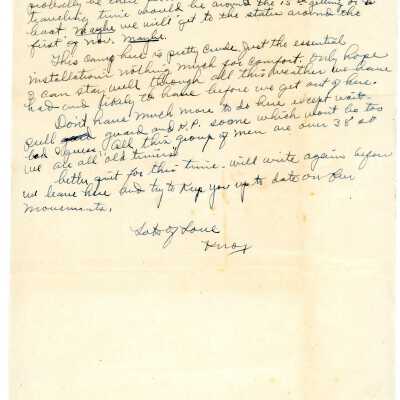 probably be there
traveling time would be around the 15th getting or a
least. Maybe we will get to the states around the
first of Nov. Maybe.
This camp here is pretty crude, just the essential
installations nothing much for comfort. Only hope
I can stay well through all this weather we have
had and likely to have before we get out of here.
Don't have much more to do here except wait.
pull guard and K.P. some which wont be too
bad I guess. All this group of men are over 38 so
we are all "old timers"
better quit for this time. will write again before
we leave here and try to keep you up to date on our
movements.
Lots of Love
Knox